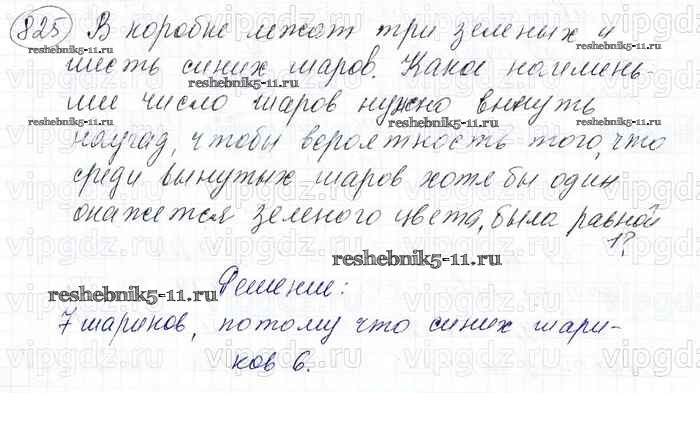 825 В коробке лежат три зеленых и
шесть синих шаров. Какое наимень-
шие число шаров нужно вынуть
наугад, чтобы вероятность того, что
среди вынутых шаров хотя бы один
окажется зеленого цвета, была равной
1?
Решение:
7 шариков, потому что синих шари-
ков 6.
reshebnik5-11.ru
reshebnik5-11.ru
reshebnik5-11.ru
reshebnik5-11.ru
reshebnik5-11.ru
reshebnik5-11.ru
reshebnik5-11.ru
vipgdz.ru